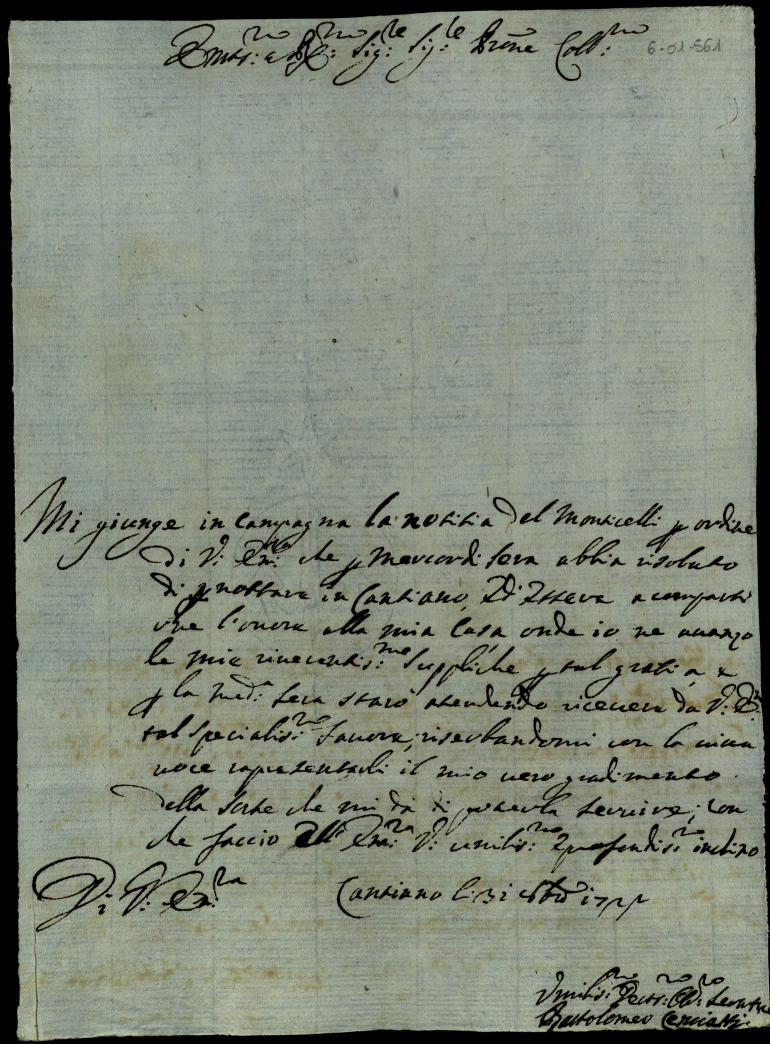 Emin:mo e R: Sig:re Sig:re Prone Coll:mo
6-01-561
Mi giunge in Campagna la notitia del Monticelli p ordine
di V: Em:za che p Mercordi sera abbia risoluto
di pnottare in Cantiano, e di essere a compartir
me l'onore alla mia Casa onde io ne avanzo
le mie riverentis:me suppliche p tal gratia e
p la med:a sera starò atendendo ricevere da V: E:
tal specialis:mo favore, riserbandomi con la viva
voce rapresentarli il mio vero gradimento
della sorte che mi dà di poterla servire; con
che faccio all' Em:za V: umilis:mo e profondis:mo inchino
Di V: Em:za Cantiano li 31
Umilis:mo Devt:mo Obl:mo Servitore
Bartolomeo